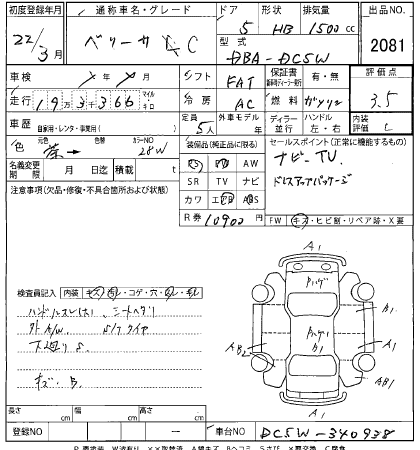 初度登録年月 通称車名・グレード ドア 形状 排気量 出品NO.
22/3月 ベリーサ C 5 HB 1500cc 2081
型式 DBA-DC5W
車検 年 月 シフト FAT 保証書 有・無 評価点 3.5
走行 19万3千366 マイル キロ 冷房 AC 燃料 ガソリン
車歴 自家用・レンタ・事業用( ) 定員 5人 外車モデル 年 ディーラー 並行 ハンドル 左・右 内装評価 C
色 元色 茶→ 色替 カラーNO 28W
装備品(純正品に限る) セールスポイント(正常に機能するもの)
PS PW AW ナビ TV.
名義変更期限 月 日迄 積載 t SR TV ナビ ドレスアップパッケージ
注意事項(欠品・修復・不具合箇所および状態) カワ エアB ABS
R券 10900 FW キズ・ヒビ割・リペア跡・X要
A1
検査員記入 内装 キズ・汚レ・コゲ・穴・
ハンドルスレ(大)、シートヘタリ
外A/W S/Tタイヤ
下廻りS.
キズ・B.
A1 A1 AB2 B1 AB1 A1
長さ cm 幅 cm 高さ cm
登録NO 車台NO DC5W-340938